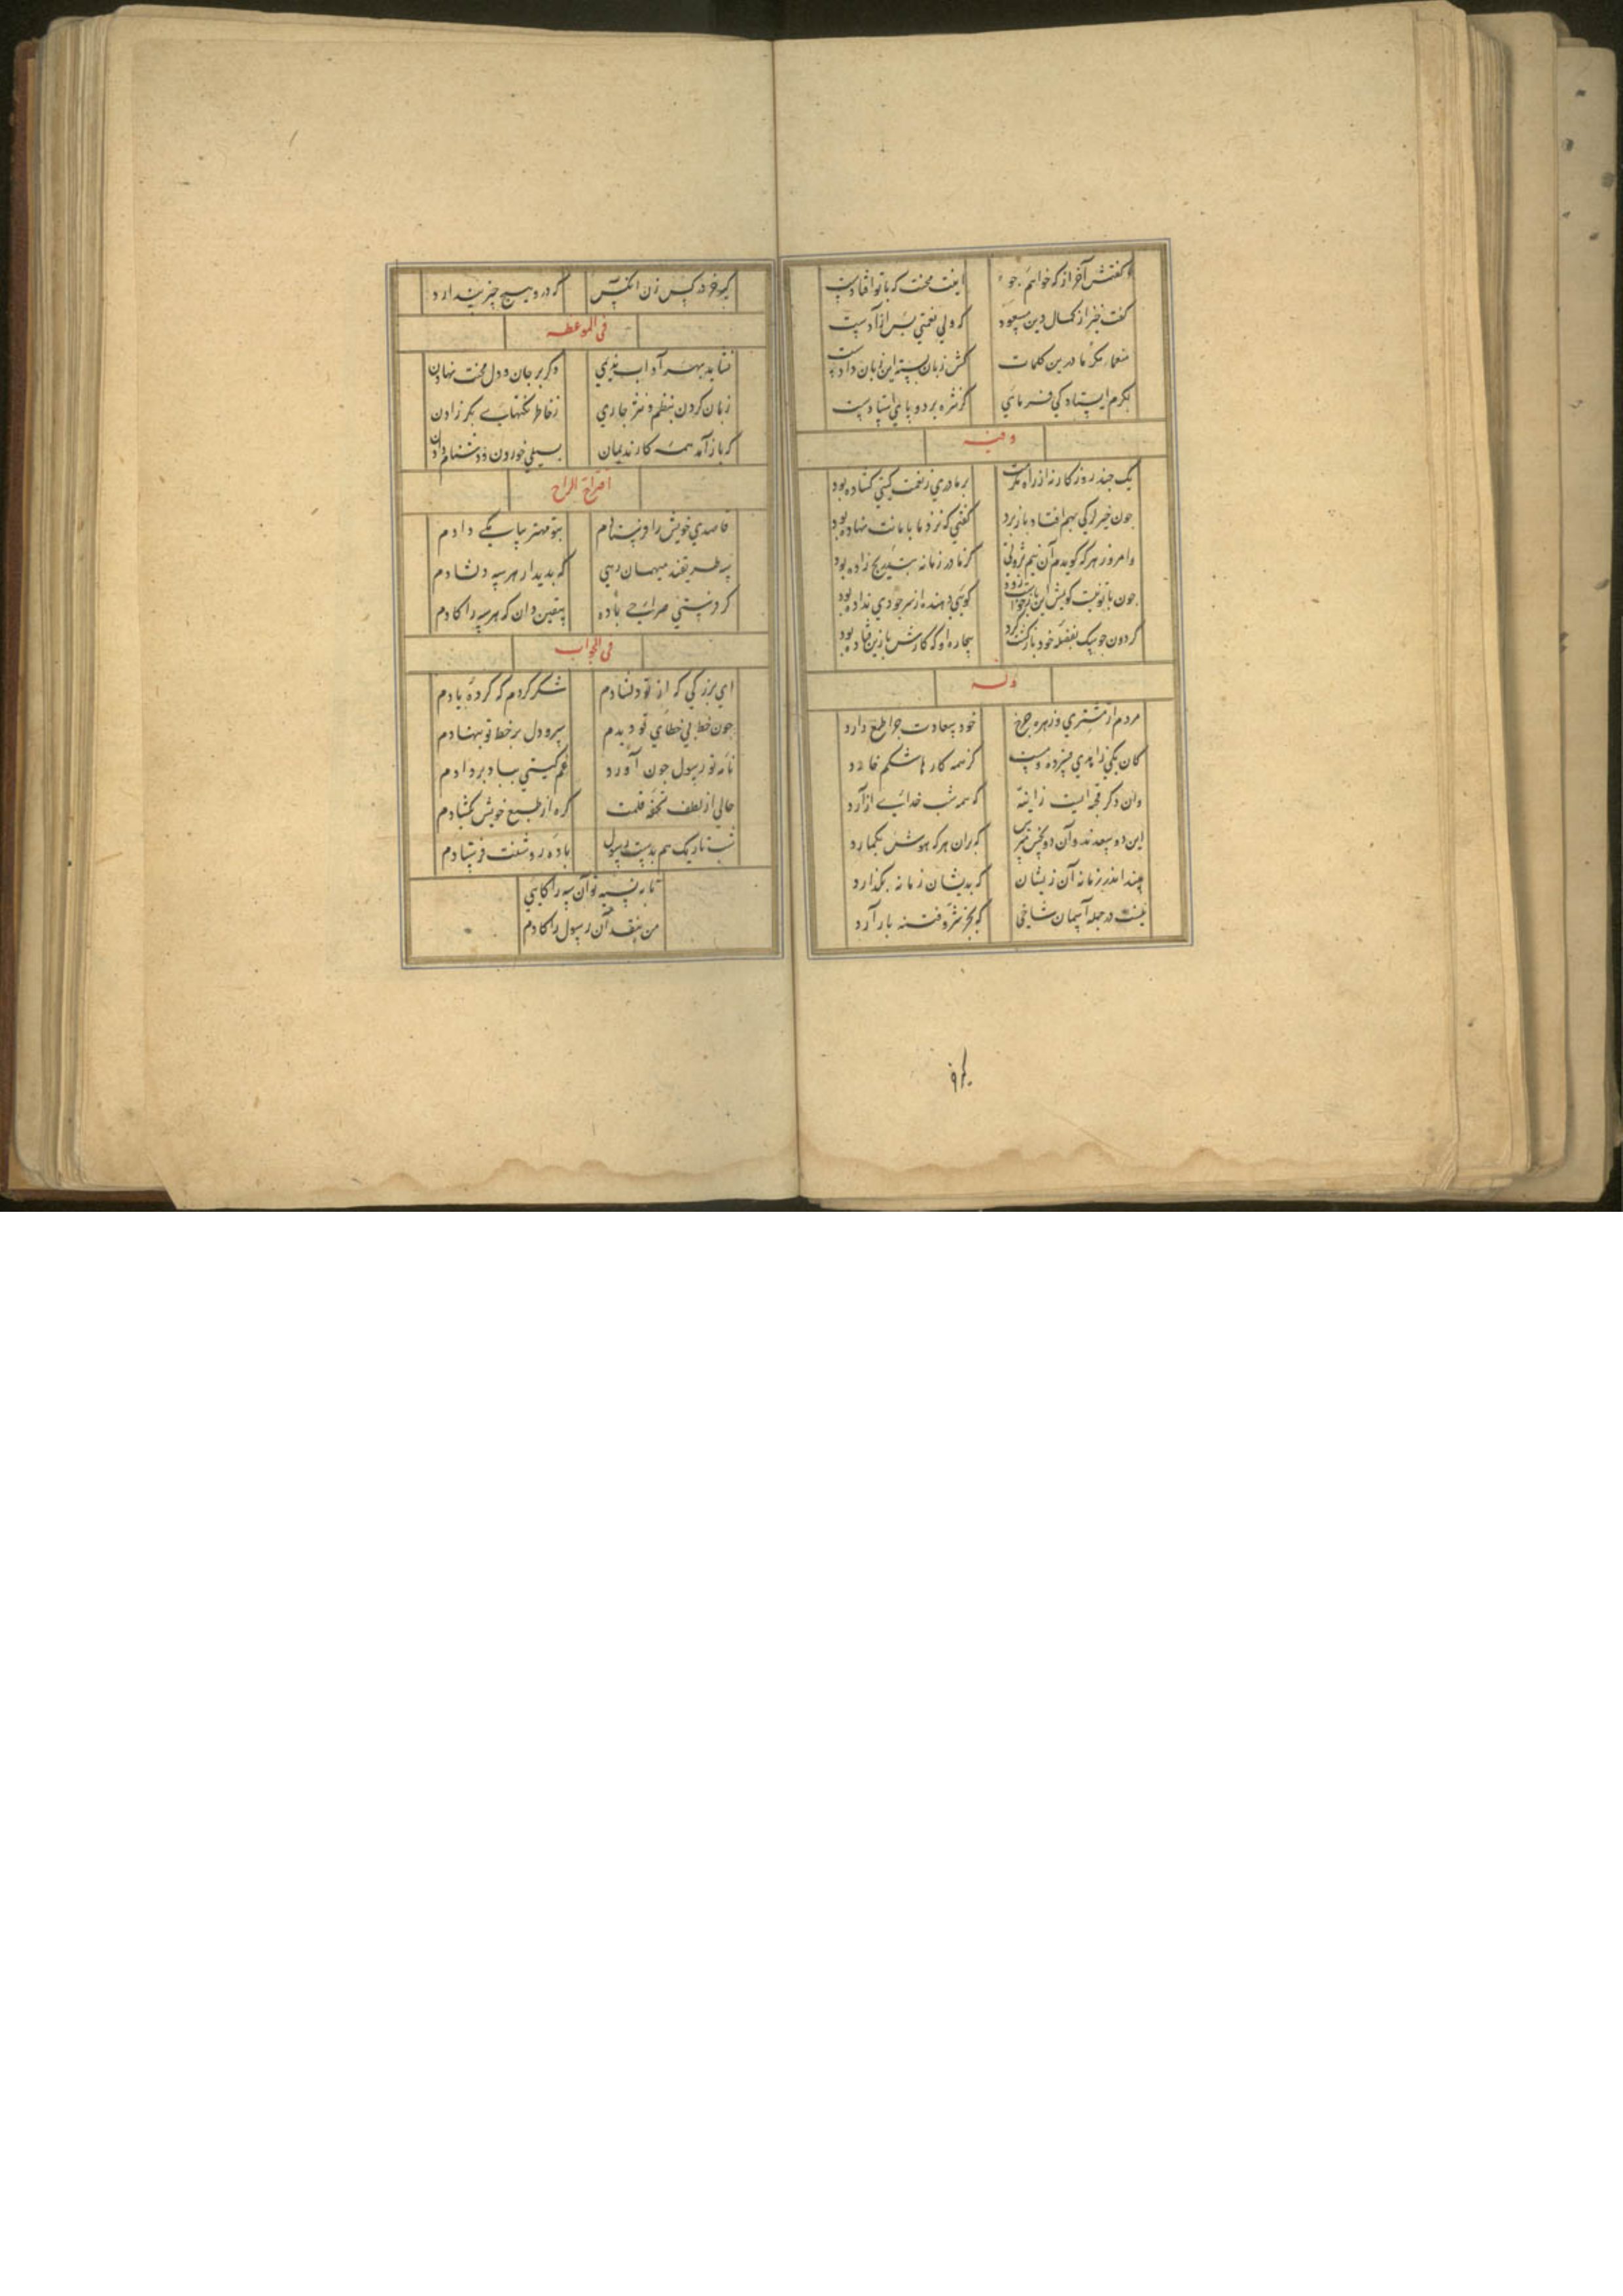 گفتمش آخر از که خواهم جو
اینت محنت که با تو افتادست
گفت خیز از کمال دین مسعود
که ولی نعمتی بس آزادست
منعما مکرما درین کلمات
کش زبان بسته این زبان دادست
بکرم ایستاده کی فرمای
کز شره بر دو پای استادست
وفیه
یک چند روزکار نه از راه مکرمت
بر ما دری ز نعمت کیتی کشاده بود
چون چیزکی بهم افتاد باز برد
کفتی که نزد ما بامانت نهاده بود
وامروز هر که کویدم آن نیم ثروتی
کز مادر زمانه بتدریج زاده بود
چون با تو نیست کویمش این
کویی دهنده از سر جودی نداده بود
کردون چو سک بفضله خود بازکشت کرد
بیچاره او که کارش با این فتاده بود
وله
مردم از مشتری و زهره چرخ
خود سعادت چرا طمع دارد
کان یکی زاهدی فسرده وست
کز همه کارها شکم خارد
وان دکر قحبه ایست زانیه
که همه شب خدای آزارد
این دو سعدند وآن دو نحس
که بران هر که هوش بکمارد
پسند اندر زمانه آن زیشان
که بدیشان زمانه بکذارد
نیست در جمله آسمان شاخی
که بجز شر و فتنه بار آرد
کیر خر در کس زن آنکس
که درو هیچ چیز پندارد
فی الموعظه
نشاید بهر آداب ندیمی
دکر بر جان و دل محنت نهادن
زبان کردن بنظم و نثر جاری
ز خاطر نکتهای بکر زادن
که باز آمد همه کار ندیمان
بسیلی خوردن و دشنام دادن
اقتراح الراح
قاصدی خویش را فرستادم
بتو مهتر پیامکی دادم
سه ظریفند میهمان رهی
که بدیدار هر سه دلشادم
کر فرستی صراحی باده
بیقین دان که هر سه را کادم
فی الجواب
ای بزرکی که از تو دلشادم
شکر کردم که کردۀ یادم
چون خط بی خطای تو دیدم
سر و دل بر خط تو بنهادم
نامه تو رسول چون آورد
غم کیتی بباد بردادم
حالی از لطف تحفه قلمت
کره از طبع خویش بکشادم
شب تاریک هم بدست رسول
باده روشنت فرستادم
تا به نسیه تو آن سه را کایی
من بنقد آن رسول را کادم